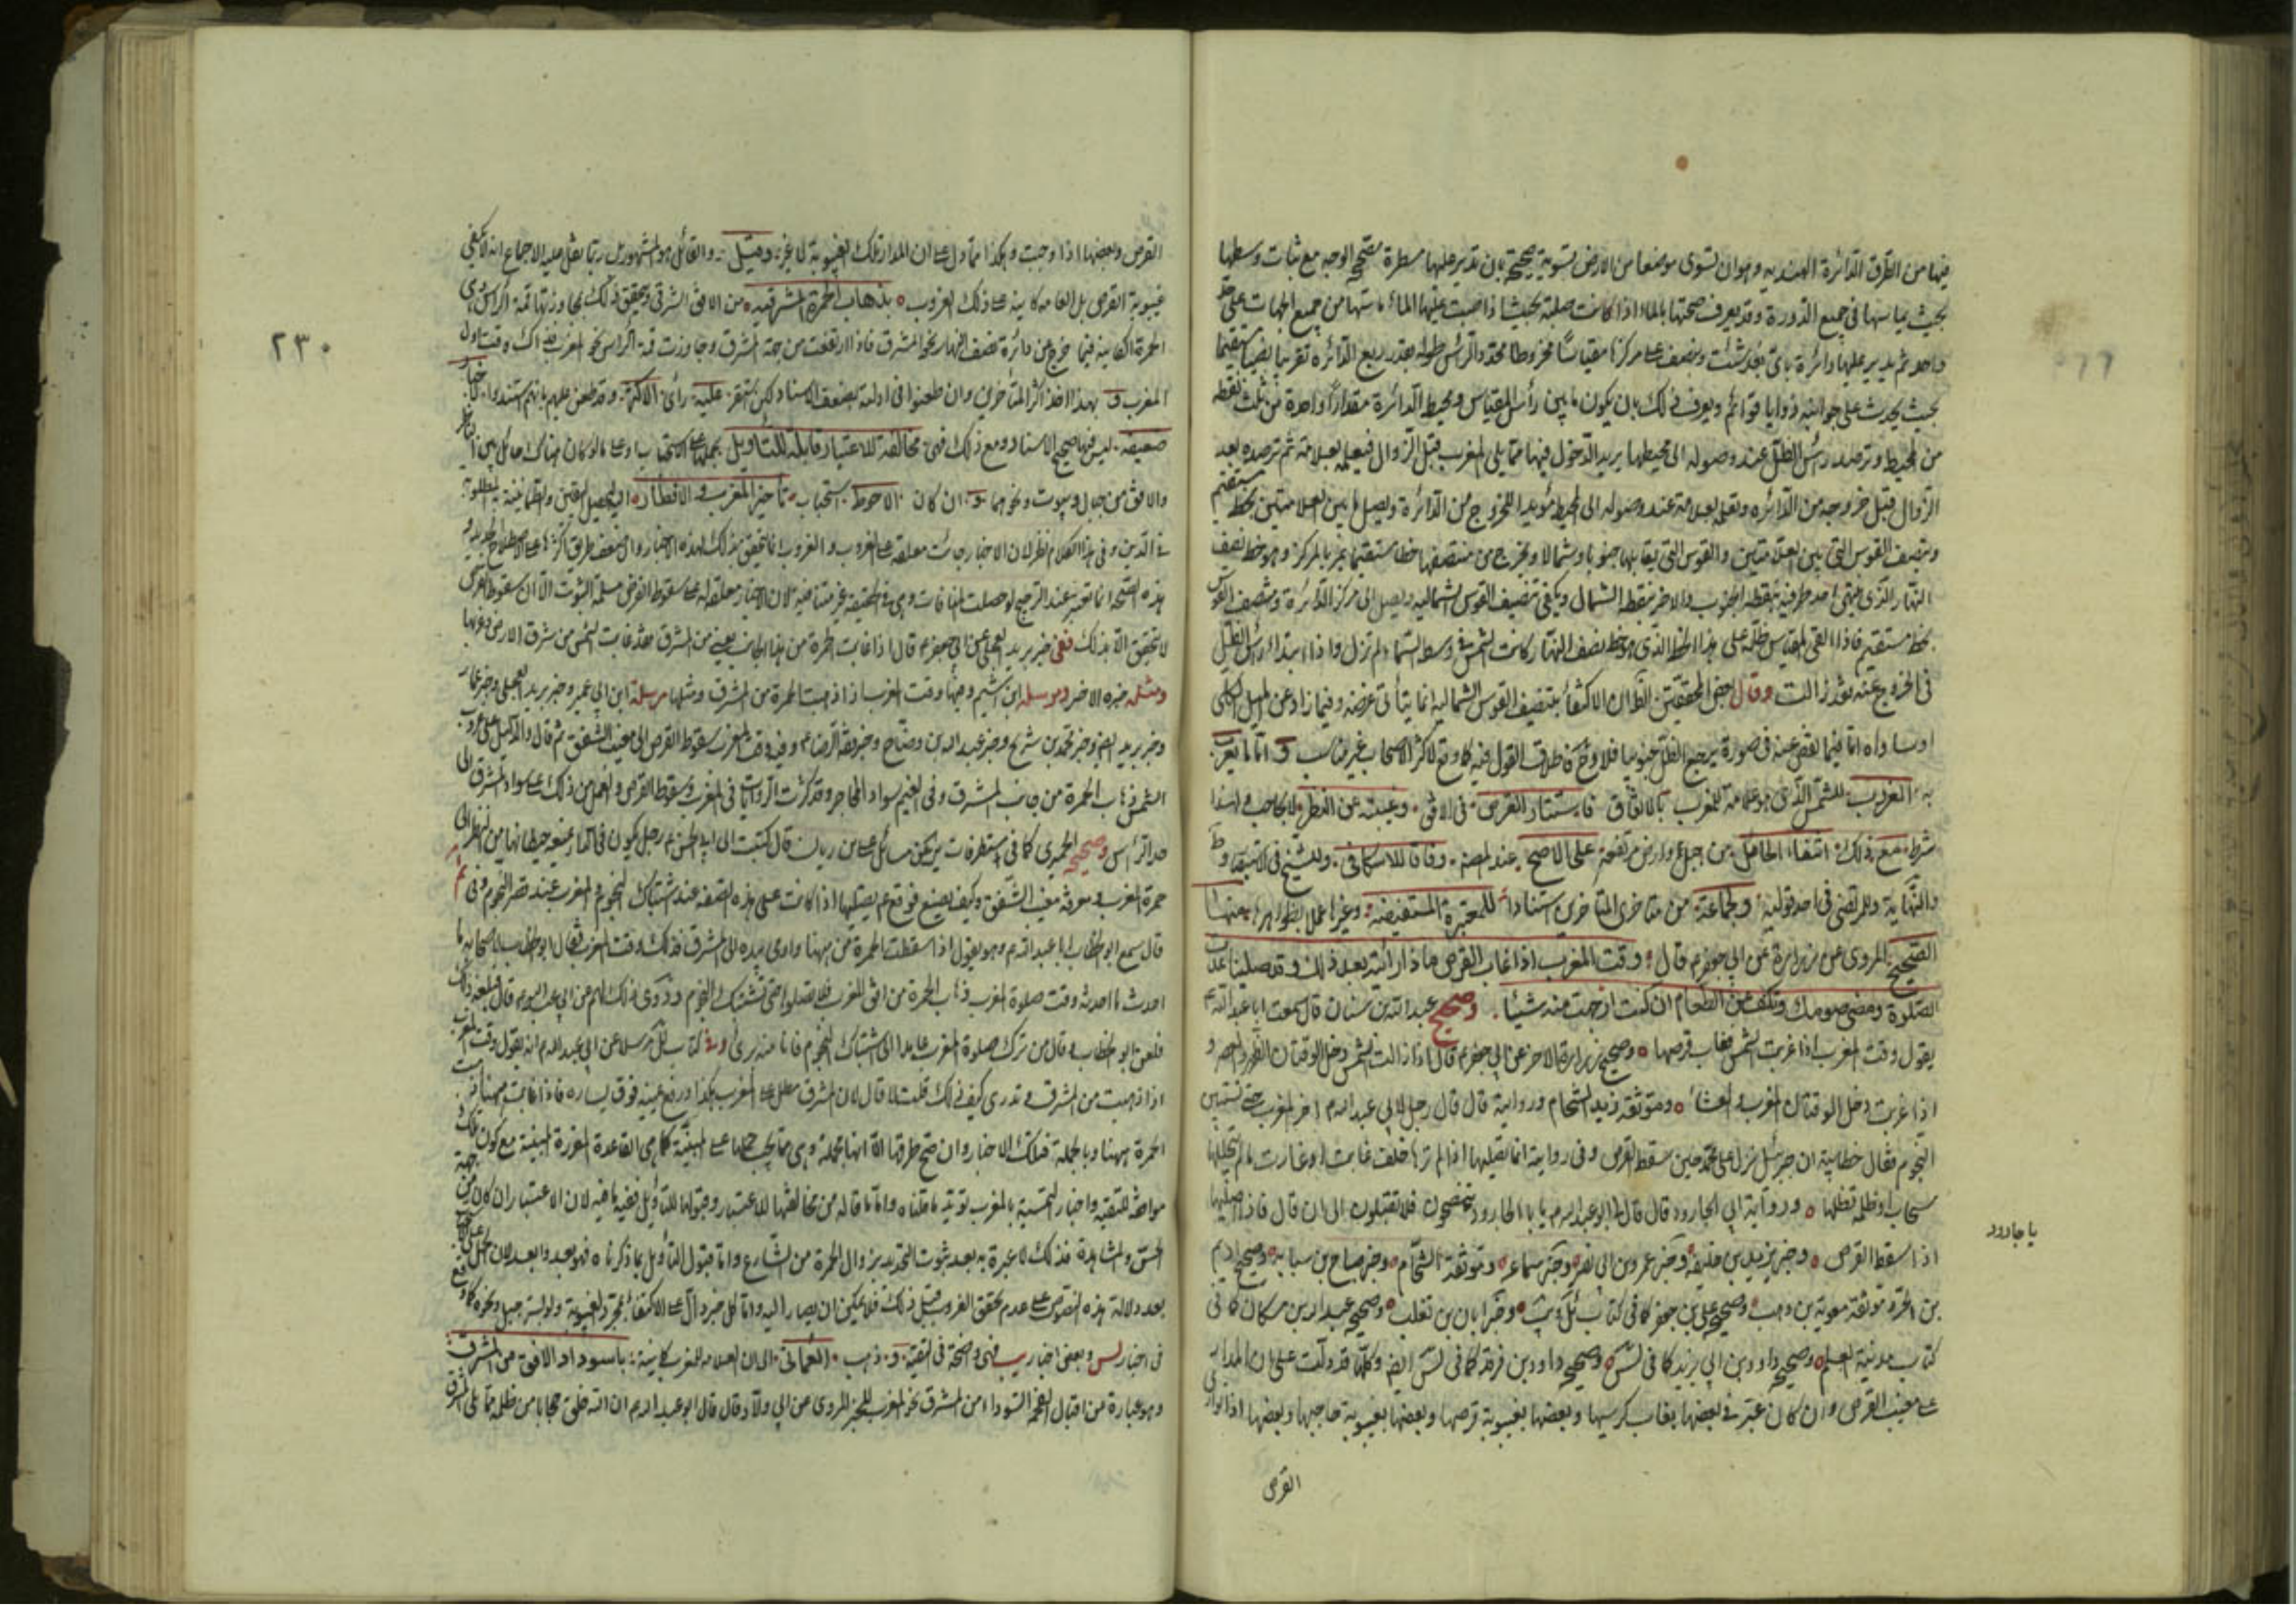 فيها من الطرق الدائرة الهندية وهو ان تسوى موضعا من الارض تسوية صحيحة بان تدير عليها مسطرة مصححة الوجه مع ثبات وسطها
بحيث يماسها في جميع الدورة وقد يعرف صحتها بالماء اذا كانت صلبة بحيث اذا صبت عليها الماء
واحد ثم يدير عليها دائرة باي بعد شئت وينصب على مركزها مقياسا مخروطا محدد الرأس طوله بقدر ربع الدائرة تقريبا نصبا مستقيما
بحيث يحدث على جوانبه زوايا قوائم ويعرف ذلك بان يكون ما بين رأس المقياس ومحيط الدائرة مقدارا واحدا من ثلث نقط
من المحيط وترصد رأس الظل عند وصوله الى محيطها يريد الدخول فيها مما يلي المغرب قبل الزوال فيعلمه بعلامة ثم ترصده بعد
الزوال قبل خروجه من الدائرة وتعلم بعلامة عند وصوله الى المحيط مريدا للخروج من الدائرة وتصل ما بين العلامتين بخط مستقيم
وينصف القوس التي بين العلامتين والقوس التي يقابلها جنوبا وشمالا ويخرج من منتصفها خطا مستقيما يمر بالمركز وهو خط نصف
النهار الذي احد طرفيه نقطة الجنوب والاخر نقطة الشمال ويكفي تنصيف القوس الشمالية ويصل الى مركز الدائرة ومنتصف القوس
بخط مستقيم فاذا القى المقياس ظله على هذا الخط الذي هو خط نصف النهار كانت الشمس في وسط السماء لم تزل واذا ابتدأ رأس الظل
في الخروج عنه فقد زالت وقال بعض المحققين الظان الاكتفا بتنصيف القوس الشمالية انما يتأتى عرضه وفيما زاد عن الميل الكلي
او ساواه اما فيما نقص عنه في صورة يرجع الظل جنوبيا فلا وح فاطلاق القول فيه كما وقع لاكثر الاصحاب غير مناسب و اما ما يعرف
به الغروب للشمس الذي هو علامة للمغرب بالاتفاق فاستتار القرص في الافق وغيبته عن النظر لا بحاجب ولهذا
شرط مع ذلك انتفاء الحائل من جبل او ارض مرتفعة على الاصح عند المص وفاقا للاسكافي وللشيخ في الاستبصار وط
والنهاية وللمرتضى في احد قوليه ولجماعة من متاخري المتاخرين استنادا للمعتبرة المستفيضة وغيرها عملا بظواهرها منها
الصحيح المروي عن زرارة عن ابي جعفر ع قال وقت المغرب اذا غاب القرص فاذا رايته بعد ذلك وقد صليت اعدت
الصلوة ومضى صومك وتكف عن الطعام ان كنت اصبت منه شيئا وصحيح عبد الله بن سنان قال سمعت ابا عبد الله ع
يقول وقت المغرب اذا غربت الشمس فغاب قرصها وصحيح زرارة الاخر عن ابي جعفر ع قال اذا زالت الشمس دخل الوقتان الظهر والعصر و
اذا غربت دخل الوقتان المغرب والعشاء وموثقة زيد الشحام ورواية قال قال رجل لابي عبد الله ع اخر المغرب حتى تستبين
النجوم فقال خطابية ان جبرئيل نزل على محمد حين سقط القرص وفي رواية انما تصليها اذا لم ترها خلف غابت او غارت ما لم تجللها
سحاب او ظلمة تظلها ورواية ابي الجارود قال قال لي ابو عبد الله ع يا با الجارود تنصحون فلا تقبلون الى ان قال فانا اصليها
اذا سقط القرص وخبر يزيد بن خليفة وخبر عمرو بن ابي نصر وخبر سماعة وموثقة الشحام وخبر صباح بن سيابة وصحيح اديم
بن الحر وموثقة معوية بن وهب وصحيح علي بن جعفر كما في كتاب ئل وب وخبر ابان بن تغلب وصحيح عبد الله بن مسكان كما في
كتاب مدينة العلم وصحيحه داود بن ابي يزيد كما في لس وصحيح داود بن فرقد كما في لس ايضا وكلها قد دلت على ان المدار
على مغيب القرص وان كان عبر في بعضها بغاب كرسيها وبعضها بغيبوبة قرصها وبعضها بغيبوبة حاجبها وبعضها اذا توارى
القرص
يا جارود
٢٣٠
القرص وبعضها اذا وجبت وهكذا مما دل على ان المدار تلك الغيبوبة لا غير وقيل والقائل هو المشهور بل ربما نقل عليه الاجماع انه لا يكفي
غيبوبة القرص بل العلامة كاينة على ذلك الغروب بذهاب الحمرة المشرقية من الافق الشرقي ويتحقق ذلك بمجاوزتها قمة الرأس وهي
الحمرة الكاينة فيما خرج عن دائرة نصف النهار نحو المشرق فاذا ارتفعت من جهة المشرق وجاوزت قمة الرأس نحو المغرب فذاك وقت اول
المغرب و بهذا اخذ اكثر المتاخرين وان طعنوا في ادلته بضعف الاسناد لكن استقر عليه رأي الاكثر وقد طعن عليهم بانهم استندوا الى اخبار
ضعيفة ليس فيها صحيح الاسناد ومع ذلك فهي مخالفة للاعتبار قابلة للتأويل بحملها على الاستحباب او على ما لو كان هناك حائل بين الناظر
والافق من جبال وبيوت ونحوهما و ان كان الاحوط استحباب تأخير المغرب والافطار الى تحصيل اليقين والطمانينة المطلوبة
في الدين وفي هذا الكلام نظر لان الاخبار جائت معلقة على الغروب والغروب انما يتحقق بذلك لهذه الاخبار وان ضعف طريق اكثرها على الاصطلاح الجديد و
هذه الصحة انما تعتبر عند الترجيح لو حصلت المنافات وهي في الحقيقة غير متنافية لان الاخبار معلقة له على سقوط القرص مسلمة الثبوت الا ان سقوط القرص
لا يتحقق الا بذلك ففي خبر بريد العجلي عن ابي جعفر ع قال اذا غابت الحمرة من هذا الجانب يعني من المشرق فقد غابت الشمس من شرق الارض وغربها
ومثله خبره الاخر ومرسله ابن اشيم وفيها وقت المغرب اذا ذهبت الحمرة من المشرق ومثلها مرسلة ابن ابي عمير وخبر بريد العجلي وخبر عمار
وخبر بريد ايضا وخبر محمد بن شريح وخبر عبد الله بن وضاح وخبر فقه الرضا ع وفيه وقت المغرب سقوط القرص الى مغيب الشفق ثم قال والدليل على غروب
الشمس ذهاب الحمرة من جانب المشرق وفي الغيم سواد المحاجر وقد كثرت الروايات في المغرب وسقوط القرص والعمل من ذلك على سواد المشرق الى
حد الرأس وصحيح الحميري كما في مستطرفات ئر عن مسائل علي بن ريان قال كتبت الى ابي الحسن ع رجل يكون في الدار تمنعه حيطانها من النظر الى
حمرة المغرب ومعرفة مغيب الشفق وكيف يصنع فوقع ع يصليها اذا كانت على هذه الصفة عند اشتباك النجوم والمغرب عند قصر النجوم وفي
قال سمع ابو الخطاب ابا عبد الله ع وهو يقول اذا سقطت الحمرة من ههنا واومى بيده الى المشرق فذلك وقت المغرب فقال ابو الخطاب لاصحابه لما
احدث ما احدثه وقت صلوة المغرب ذهاب الحمرة من افق المغرب فلا تصلوها حتى تشتبك النجوم وروى ذلك لهم عن ابي عبد الله ع قال فبلغه ذلك
فلعن ابو الخطاب وقال من ترك صلوة المغرب عامدا الى اشتباك النجوم فانا منه بريئ وفي كتاب ئل مرسلا عن ابي عبد الله ع انه يقول وقت المغرب
اذا ذهبت من المشرق وتدري كيف ذلك قلت لا قال لان المشرق مطل على المغرب هكذا ورفع يمينه فوق يساره فاذا غابت ههنا ذهبت
الحمرة ههنا وبالجملة فتلك الاخبار وان صح طرقها الا انها مجملة وهي مما يجب حملها على المبينة كما هي القاعدة المقررة المبينة مع كون تلك
موافقة للتقية واخبار التمسية بالمغرب تؤيد ما قلناه واما ما قاله من مخالفتها للاعتبار وقبولها للتأويل ففيه ما فيه لان الاعتبار ان كان من جهة
الحس والمشاهدة فذلك لا عبرة به بعد ثبوت التحديد بزوال الحمرة من الشارع واما قبول التأويل بما ذكرناه فهو بعيد وابعد لان الحمل على
بعد دلالة هذه النصوص على عدم تحقق الغروب قبل ذلك فلا يمكن ان يصار اليه واما كل خبر دال على الاكتفاء بمجرد الغيبوبة ولو لستة جبل ونحوه كما وقع
في اخبار لس وبعض اخبار يب فهي واضحة في التقية و ذهب العماني الى ان العلامة للمغرب كاينة باسوداد الافق من المشرق
وهو عبارة من اقبال الفحمة السوداء من المشرق نحو المغرب للخبر المروي عن ابي ولاد قال قال ابو عبد الله ع ان الله خلق حجابا من ظلمة مما يلي المشرق